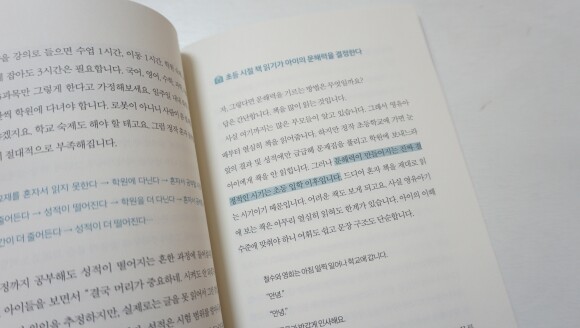 을 강의로 들으면 수업 1시간, 이동 1시간,
잡아도 3시간은 필요합니다. 국어, 영어, 수학,
과목만 그렇게 한다고 가정해보세요. 일주일
학원에 다녀야 합니다. 로봇이 아니니 사람이
겠지요. 학교 숙제도 해야 할 테고요. 그럼
절대적으로 부족해집니다.
교재를 혼자서 읽지 못한다 → 학원에 다닌다 → 혼자서 공부할
줄어든다 → 성적이 떨어진다 → 학원을 더 다닌다 → 혼자
간이 더 줄어든다 → 성적이 더 떨어진다
정까지 공부해도 성적이 떨어지는 흔한 과정에
아이들을 보면서 "결국 머리가 중요하네.
을 추정하지만, 실제로는 글을 못
초등 시절 책 읽기가 아이의 문해력을 결정한다
자, 그렇다면 문해력을 기르는 방법은 무엇일까요?
답은 간단합니다. 책을 많이 읽는 것입니다.
사실 여기까지는 많은 부모들이 알고 있습니다. 그래서 영유아
때부터 열심히 책을 읽어줍니다. 하지만 정작 초등학교에 가면 눈
앞의 결과 및 성적에만 급급해 문제집을 풀리고 학원에 보내느라
아이에게 책을 안 읽힙니다. 그러나 문해력이 만들어지는 진짜 결
정적인 시기는 초등 입학 이후입니다. 드디어 혼자 책을 제대로 읽
는 시기이기 때문입니다. 어려운 책도 보게 되고요. 사실 영유아기
에 보는 책은 아무리 열심히 읽혀도 한계가 있습니다. 아이의 이해
수준에 맞춰야 하니 어휘도 쉽고 문장 구조도 단순합니다.
철수와 영희는 아침 일찍 일어나 학교에 갑니다.
"안녕."
"안녕."
반갑게 인사해요.